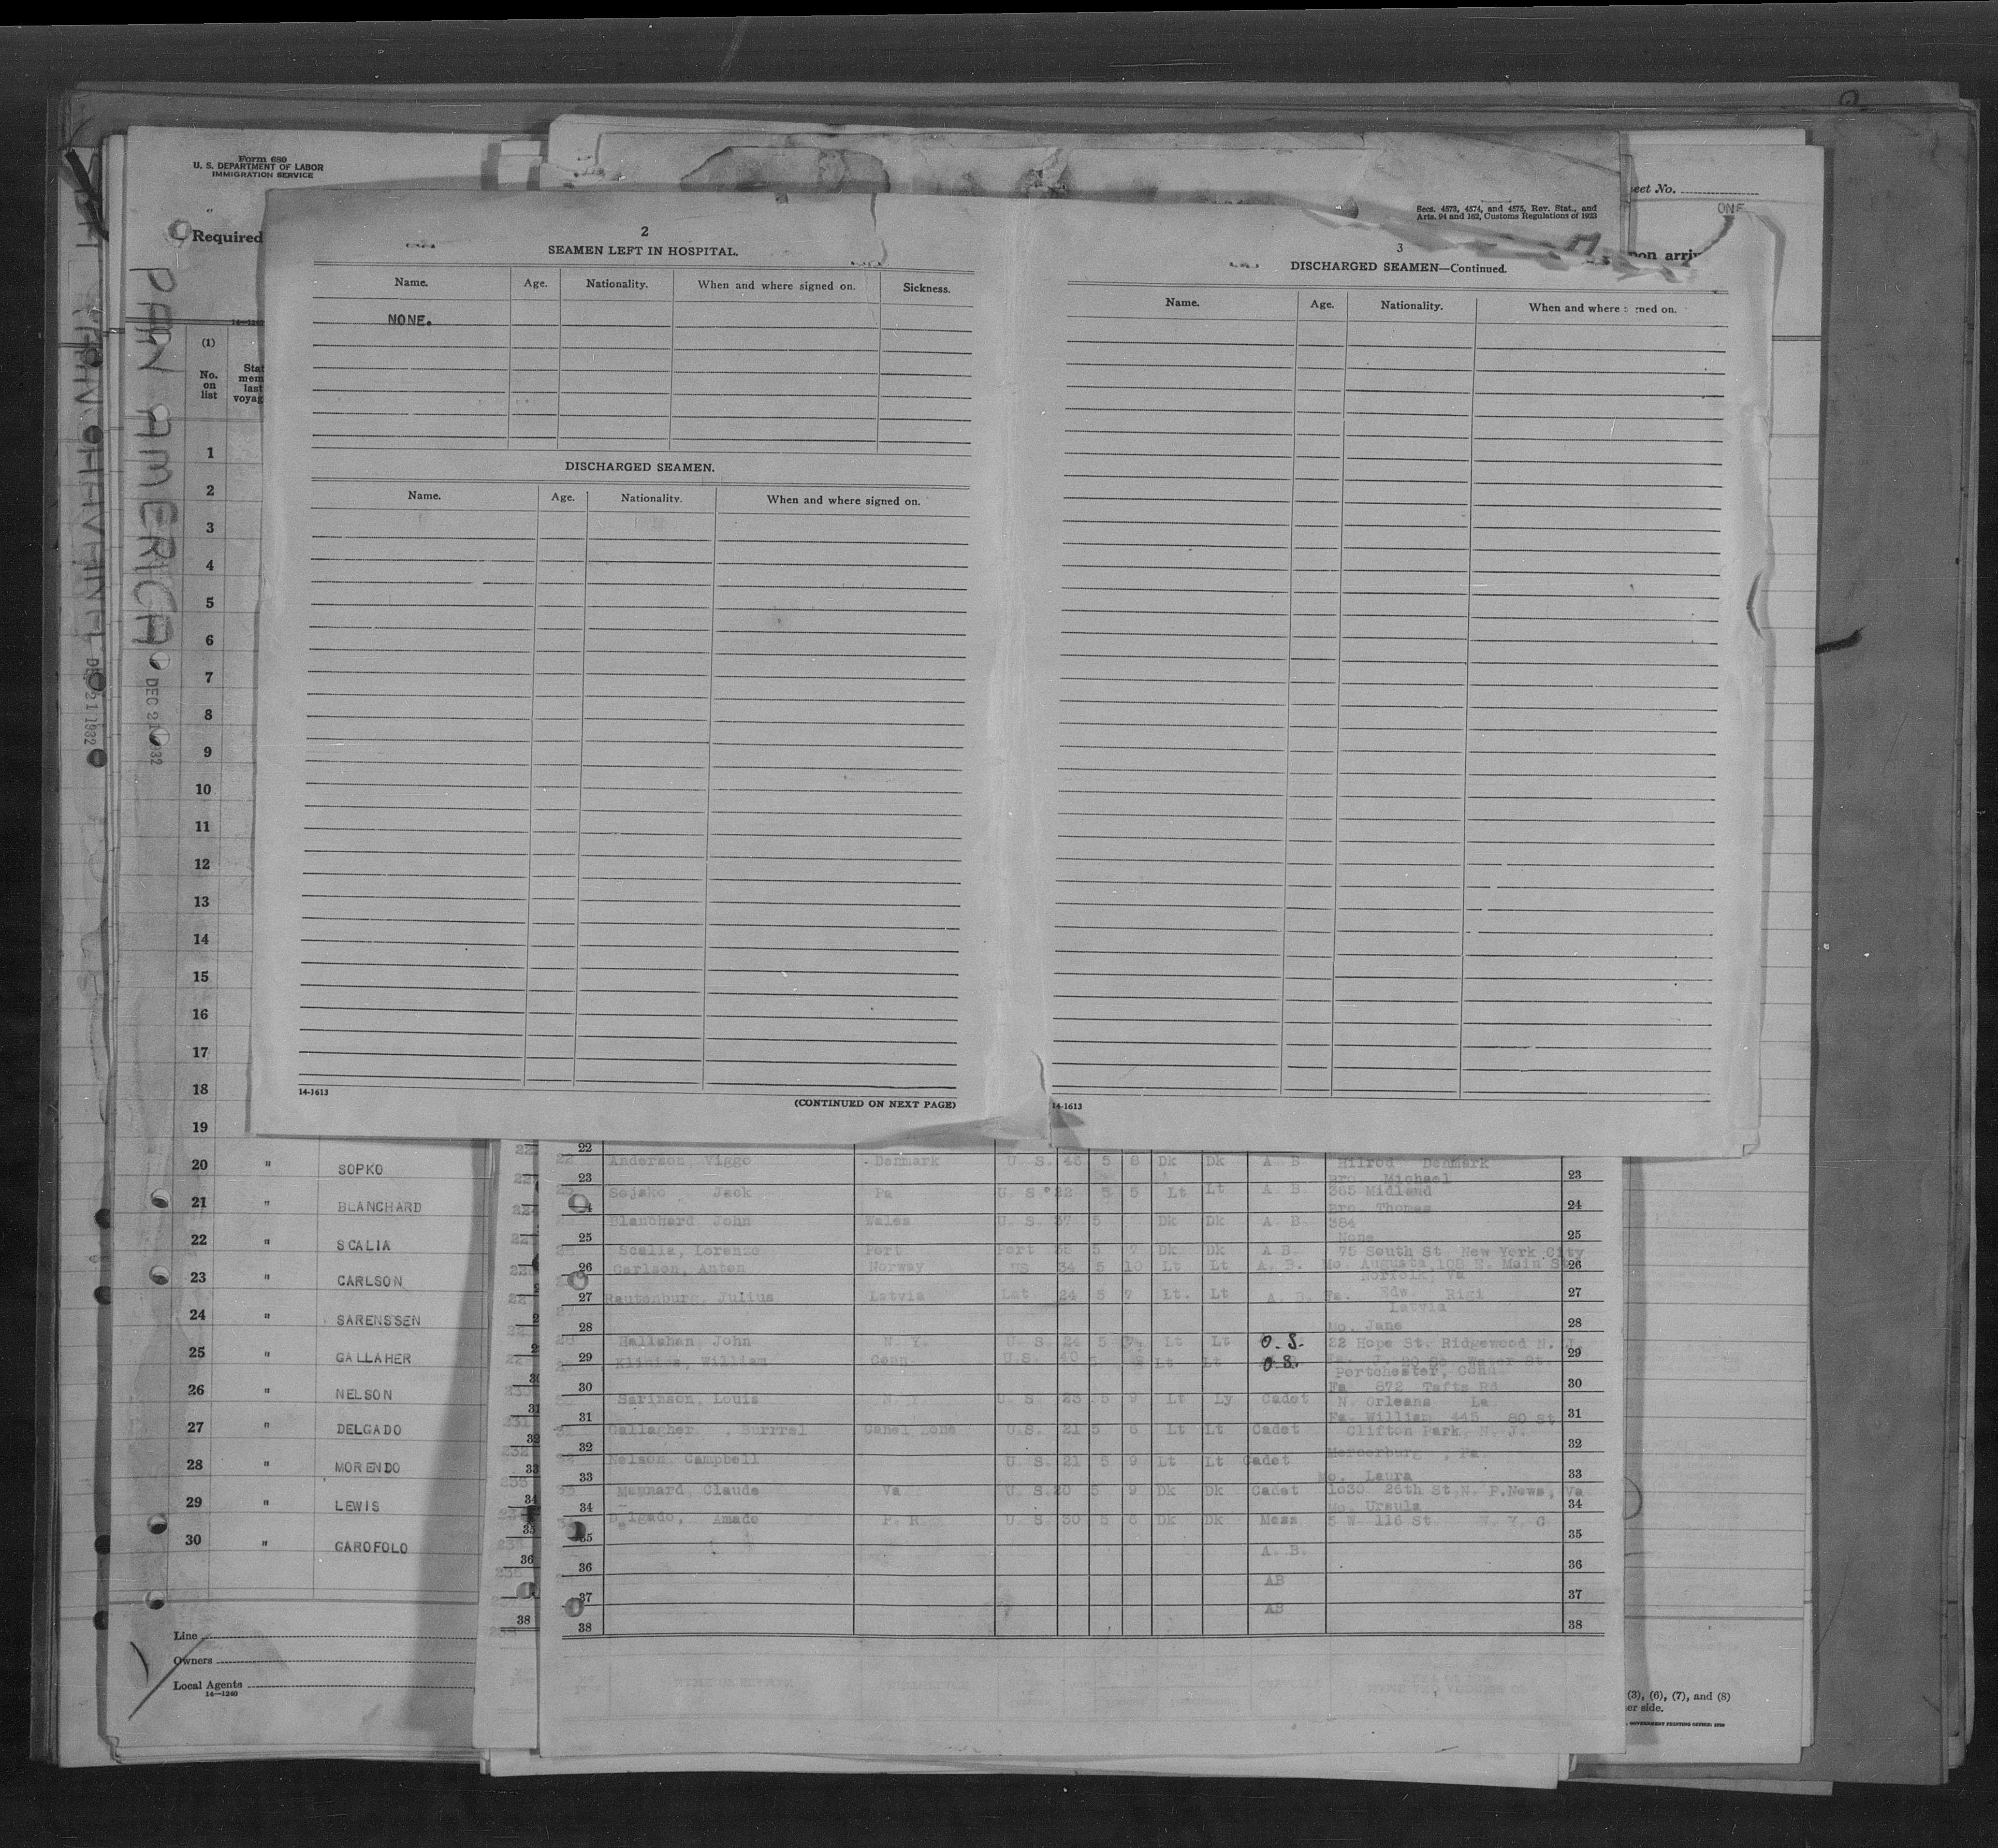 Form 680
U. S. DEPARTMENT OF LABOR
IMMIGRATION SERVICE
Required
PAN AMERICA
DEC 21 1932
DEC 21 1932
(1)
No. on list
1
2
3
4
5
6
7
8
9
10
11
12
13
14
15
16
17
18
19
20 " SOPKO
21 " BLANCHARD
22 " SCALIA
23 " CARLSON
24 " SARENSSEN
25 " GALLAHER
26 " NELSON
27 " DELGADO
28 " MORENDO
29 " LEWIS
30 " GAROFOLO
Line
Owners
Local Agents
14—1240
2
SEAMEN LEFT IN HOSPITAL.
Name. Age. Nationality. When and where signed on. Sickness.
NONE.
DISCHARGED SEAMEN.
Name. Age. Nationality. When and where signed on.
14-1613
(CONTINUED ON NEXT PAGE)
Secs. 4573, 4574, and 4575, Rev. Stat., and
Arts. 94 and 162, Customs Regulations of 1923
3
DISCHARGED SEAMEN—Continued.
Name. Age. Nationality. When and where signed on.
14-1613
eet No.
ONE
pon arriv
22
Anderson Viggo Denmark U. S. 46 5 8 Dk Dk A B Hilrod Denmark
23 Bro Michael 23
Sojako Jack Pa U. S. 22 5 5 Lt Lt A B. 365 Midland
Bro Thomas 24
Blanchard John Wales U. S. 37 5 Dk Dk A. B 384
25 None 25
Scalla, Lorenzo Port Port 35 5 7 Dk Dk A B. 75 South St New York City
26 Carlson, Anton Norway US 34 5 10 Lt Lt A. B. Mo. Augusta, 108 E. Main St 26
Norfolk, Va
27 Rautenburg, Julius Latvia Lat. 24 5 7 Lt. Lt A. B. Fa. Edw. Rigi 27
Latvia
28 Mo. Jane 28
Hallahan John N. Y. U. S. 24 5 Lt Lt O. S. 22 Hope St. Ridgewood N. J.
29 Klinius, William Conn U.S. 40 5 8 Lt Lt O.S. Water St. 29
Portchester, Conn
30 Fa 872 Tafts Rd 30
Sarinson, Louis N. Y. U. S. 23 5 9 Lt Ly Cadet N Orleans La
31 Fa. William 445 80 St 31
Gallagher , Burrrel Canel Zone U.S. 21 5 8 Lt Lt Cadet Clifton Park, N. J.
32 Mercerburg , Pa. 32
Nelson Campbell U. S. 21 5 9 Lt Lt Cadet
33 Mo. Laura 33
Mannard, Claude Va U. S. 20 5 9 Dk Dk Cadet 1030 26th St, N. P.News, Va
34 Mo. Ursula 34
Delgado, Amado P. R. U. S. 30 5 8 Dk Dk Mess 5 W. 116 St. N. Y. C
35 35
A. B.
36 36
AB
37 37
AB
38 38
(3), (6), (7), and (8)
er side.
GOVERNMENT PRINTING OFFICE